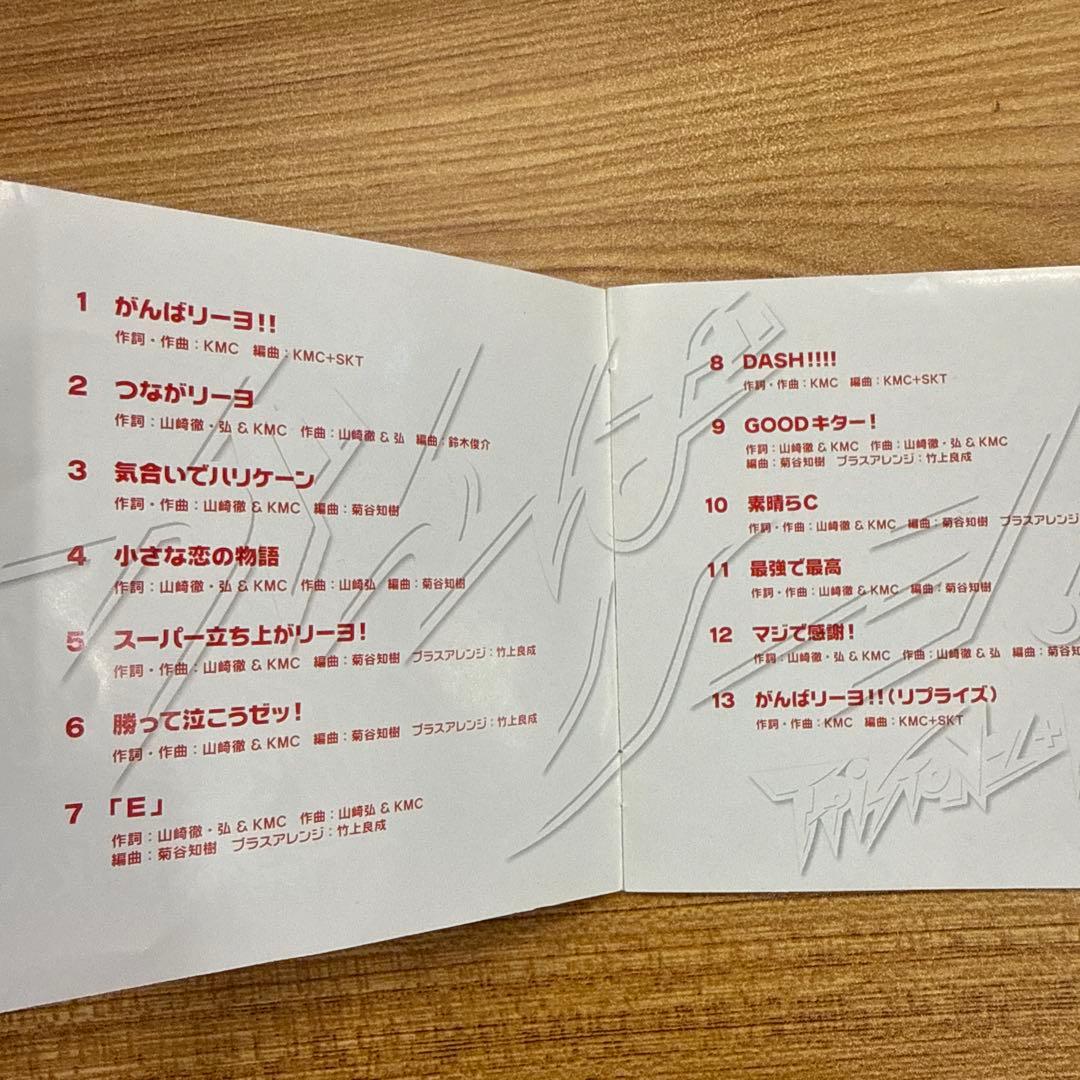 1 がんばリーヨ!!
作詞・作曲：KMC 編曲：KMC+SKT
2 つながリーヨ
作詞：山崎徹・弘 & KMC 作曲：山崎徹 & 弘 編曲：鈴木俊介
3 気合いでハリケーン
作詞・作曲：山崎徹 & KMC 編曲：菊谷知樹
4 小さな恋の物語
作詞：山崎徹・弘 & KMC 作曲：山崎弘 編曲：菊谷知樹
5 スーパー立ち上がリーヨ!
作詞・作曲：山崎徹 & KMC 編曲：菊谷知樹 ブラスアレンジ：竹上良成
6 勝って泣こうゼッ!
作詞・作曲：山崎徹 & KMC 編曲：菊谷知樹 ブラスアレンジ：竹上良成
7 「E」
作詞：山崎徹・弘 & KMC 作曲：山崎弘 & KMC
編曲：菊谷知樹 ブラスアレンジ：竹上良成
8 DASH!!!!
作詞・作曲：KMC 編曲：KMC+SKT
9 GOODキター!
作詞：山崎徹 & KMC 作曲：山崎徹・弘 & KMC
編曲：菊谷知樹 ブラスアレンジ：竹上良成
10 素晴らC
作詞・作曲：山崎徹 & KMC 編曲：菊谷知樹 ブラスアレンジ
11 最強で最高
作詞・作曲：山崎徹 & KMC 編曲：菊谷知樹
12 マジで感謝!
作詞：山崎徹・弘 & KMC 作曲：山崎徹 & 弘 編曲：菊谷知
13 がんばリーヨ!!(リプライズ)
作詞・作曲：KMC 編曲：KMC+SKT